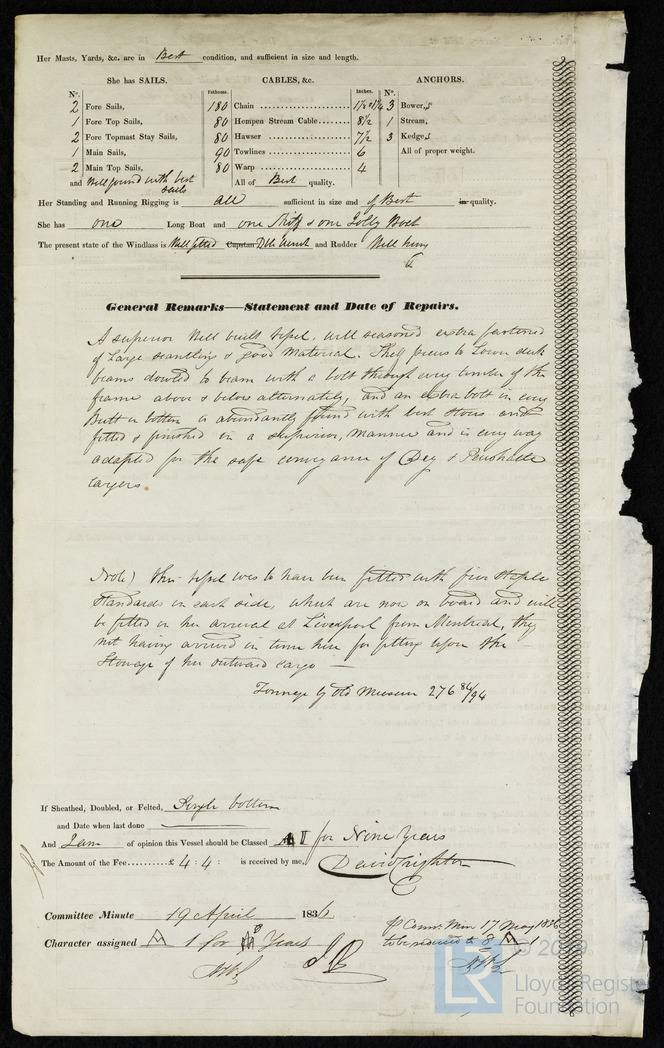 Her Masts, Yards, &c. are in Best condition, and sufficient in size and length.
She has SAILS. CABLES, &c. ANCHORS.
N°. Fathoms. Inches. N°.
2 Fore Sails, 180 Chain 3 Bower,s
1 Fore Top Sails, 80 Hempen Stream Cable 8½ 1 Stream,
2 Fore Topmast Stay Sails, 80 Hawser 7½ 3 Kedge,s
1 Main Sails, 90 Towlines 6 All of proper weight.
2 Main Top Sails, 80 Warp 4
and Well found with best sails All of Best quality.
Her Standing and Running Rigging is all sufficient in size and of Best in quality.
She has one Long Boat and one Skiff & one Jolly Boat
The present state of the Windlass is Well fitted Capstan Dble Winch and Rudder Well hung
General Remarks—Statement and Date of Repairs.
A superior Well built Vessel, well seasoned extra fastened
of Large scantling & good Material. Shelf pieces to Lower deck
beams doweled to beam with a bolt through every timber of the
frame above & below alternately, and an extra bolt in every
Butt in bottom is abundantly found with best Stores and
fitted & finished in a superior, manner and is every way
adapted for the safe conveyance of Dry & Perishable
Cargoes
Note) this Vessel was to have been fitted with five Staple
Standards on each side, which are now on board and will
be fitted on her arrival at Liverpool from Montreal, they
not having arrived in time here for fitting upon the
Stowage of her outward cargo —
Tonnage by Old Measure 276 86/94
If Sheathed, Doubled, or Felted, Single bottom
and Date when last done
And I am of opinion this Vessel should be Classed A I for Nine Years
The Amount of the Fee £ 4 : 4 : is received by me, David Crighton
Committee Minute 19 April 1836
Character assigned A 1 for 8 Years
pr Comee Min 17 May 1836
to be reduced to 8 A 1
© 2019.
LR
Lloyd's Register
Foundation